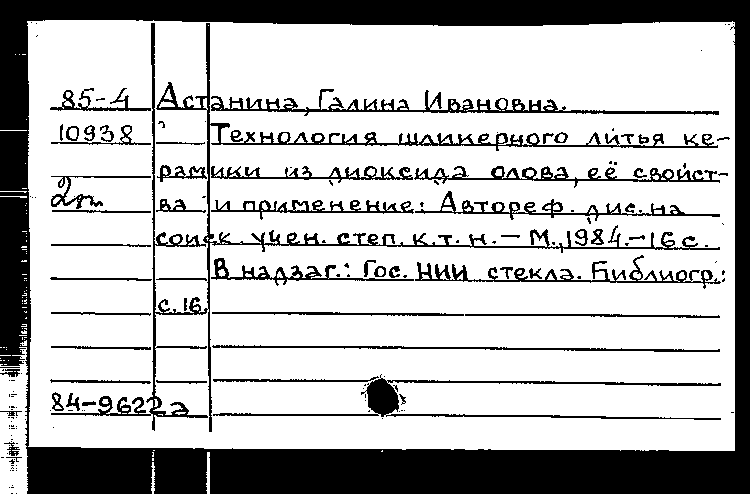 85-4 Астанина, Галина Ивановна.
10938 Технология шликерного литья ке-
рамики из диоксида олова, её свойст-
2 ва и применение: Автореф. дис. на
соиск. учен. степ. к.т.н. — М., 1984.—16 с.
В надзаг.: Гос. НИИ стекла. Библиогр.:
с. 16.
84-9622а